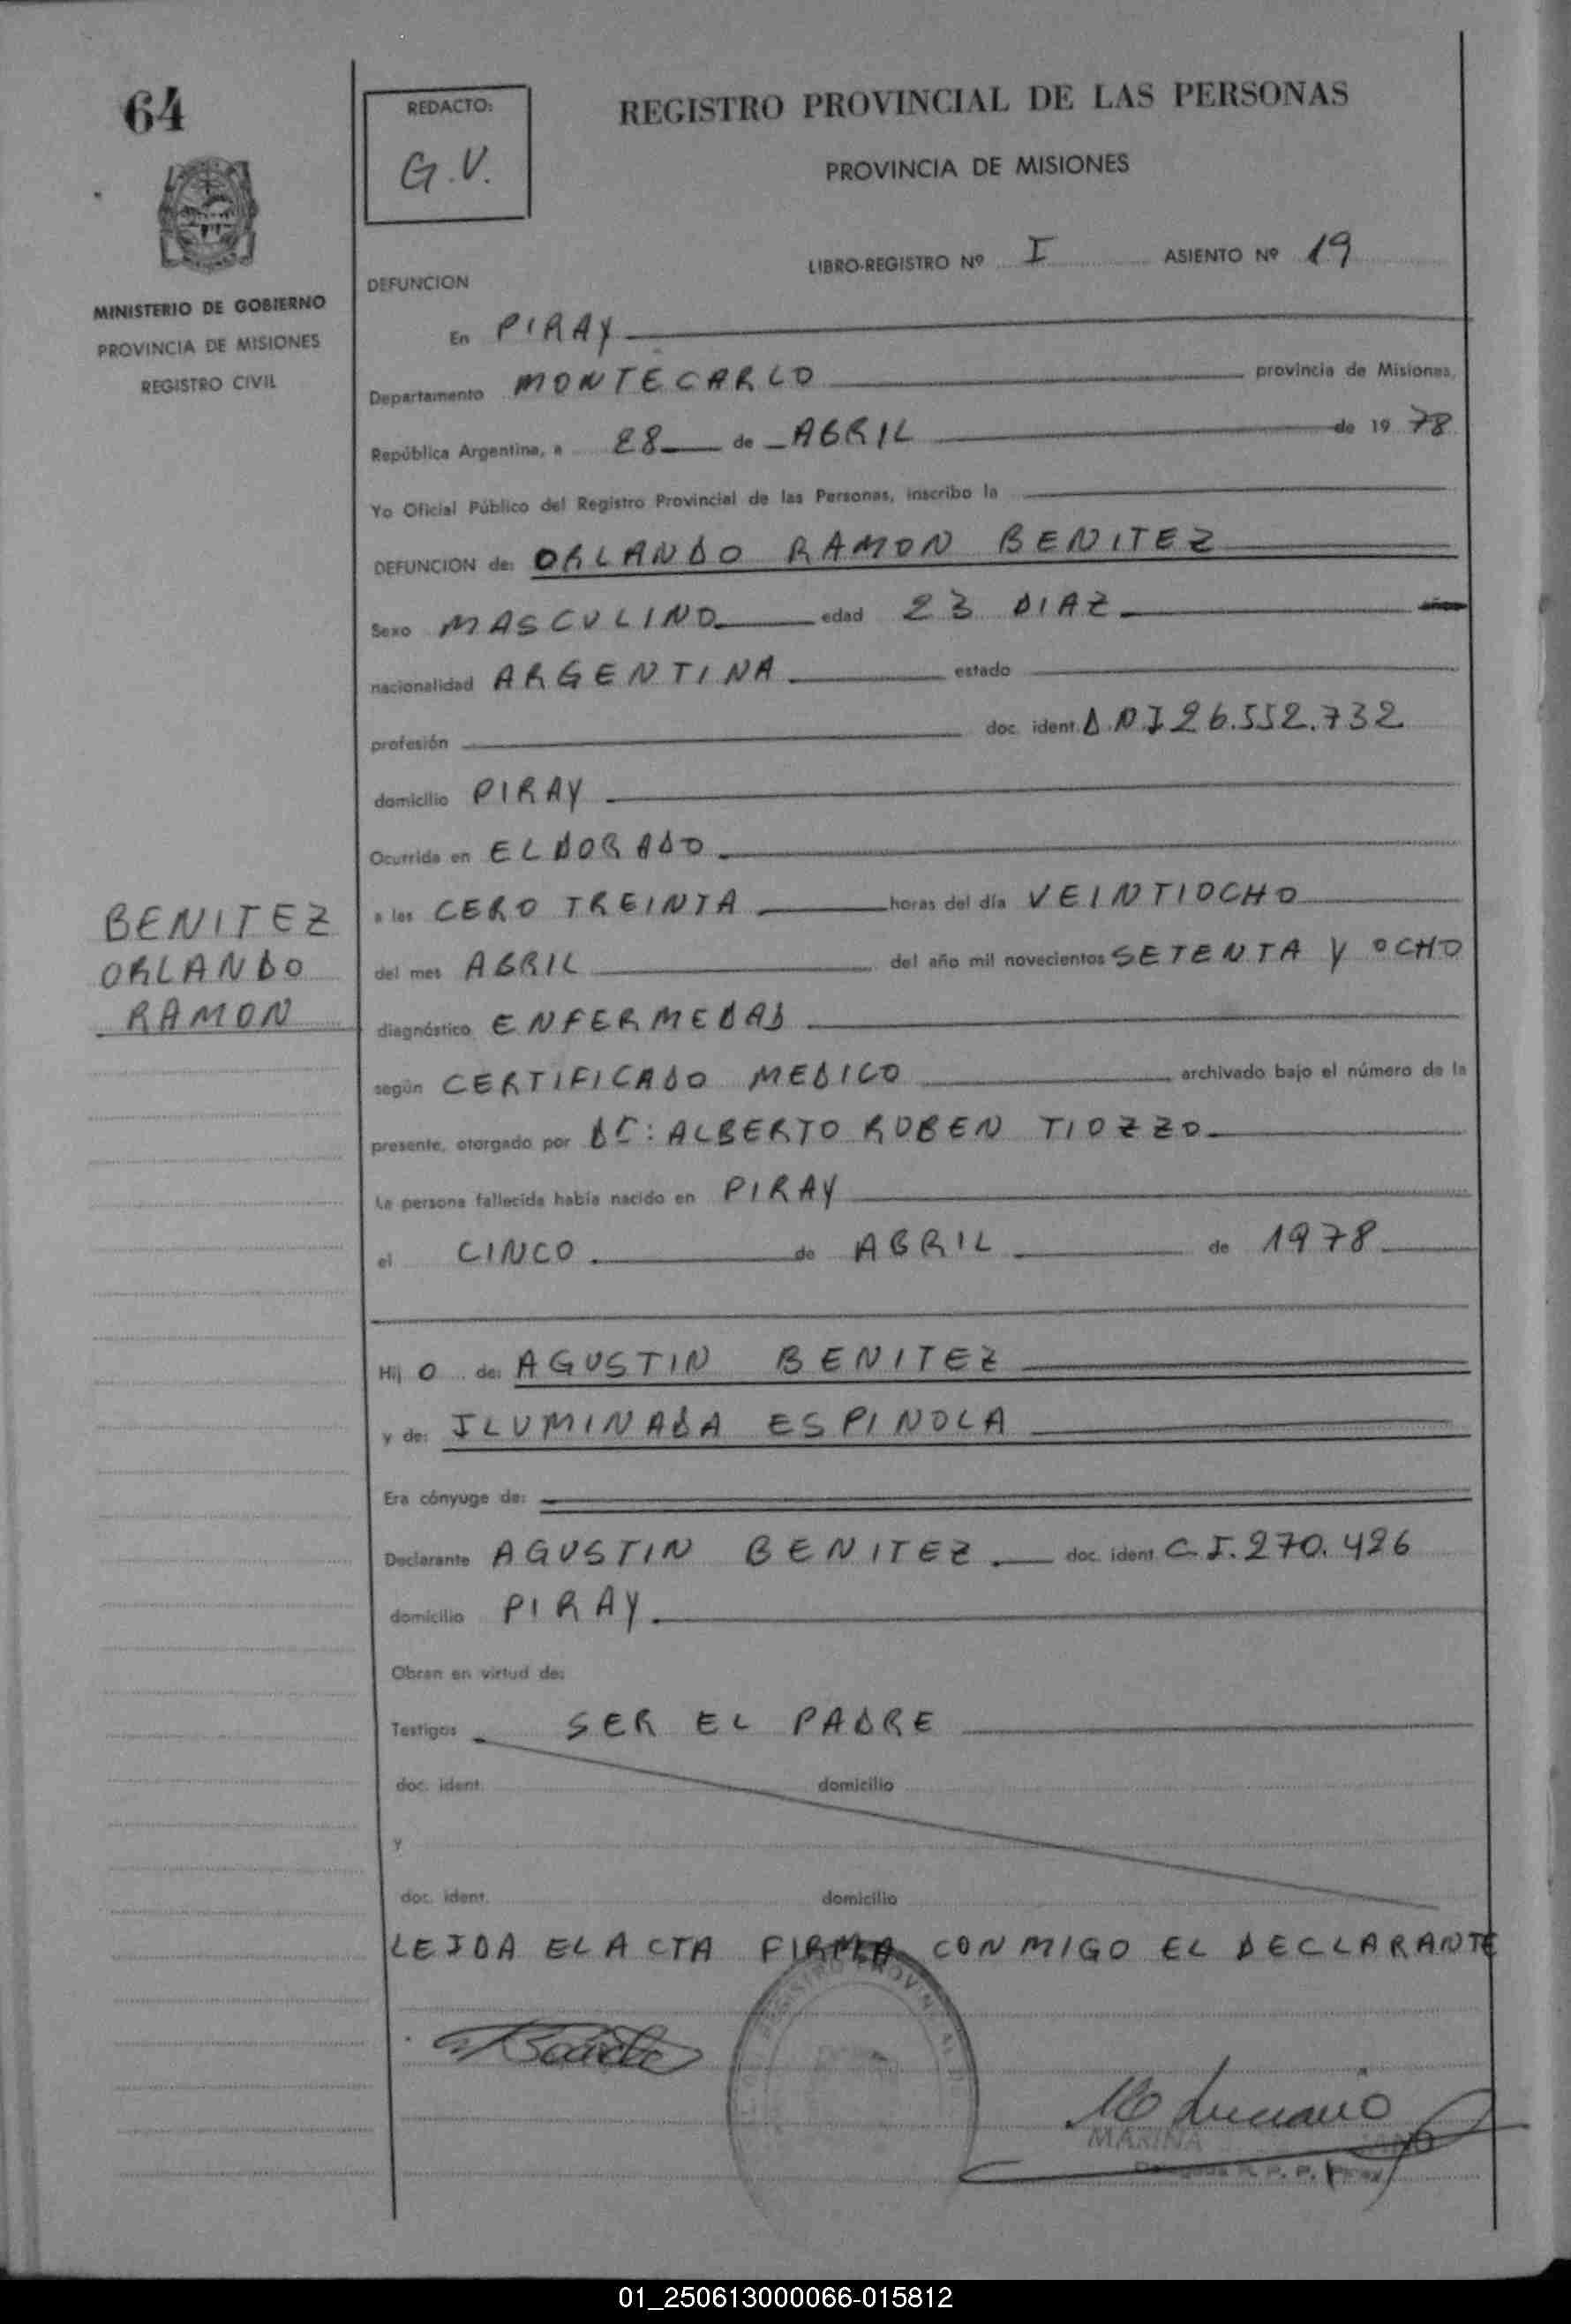 64
REDACTO:
G.V.
REGISTRO PROVINCIAL DE LAS PERSONAS
PROVINCIA DE MISIONES
LIBRO-REGISTRO Nº I ASIENTO Nº 19
MINISTERIO DE GOBIERNO
PROVINCIA DE MISIONES
REGISTRO CIVIL
DEFUNCION
En PIRAY
Departamento MONTECARLO provincia de Misiones,
República Argentina, a 28 de ABRIL de 19 78
Yo Oficial Público del Registro Provincial de las Personas, inscribo la
DEFUNCION de: ORLANDO RAMON BENITEZ
Sexo MASCULINO edad 23 DIAZ años
nacionalidad ARGENTINA estado
profesión doc. ident. D.N.I 26.552.732
domicilio PIRAY
Ocurrida en ELDORADO
a las CERO TREINTA horas del día VEINTIOCHO
BENITEZ
ORLANDO
RAMON
del mes ABRIL del año mil novecientos SETENTA Y OCHO
diagnóstico ENFERMEDAD
según CERTIFICADO MEDICO archivado bajo el número de la
presente, otorgado por Dr: ALBERTO RUBEN TIOZZO
La persona fallecida había nacido en PIRAY
el CINCO de ABRIL de 1978
Hij O de: AGUSTIN BENITEZ
y de: ILUMINADA ESPINOLA
Era cónyuge de:
Declarante AGUSTIN BENITEZ doc. ident. C.I. 270.426
domicilio PIRAY
Obran en virtud de:
Testigos SER EL PADRE
doc. ident. domicilio
y
doc. ident. domicilio
LEIDA EL ACTA FIRMA CONMIGO EL DECLARANTE
REGISTRO PROVINCIAL
M Luciano
MARINA
Delegada R. P. P. Piray
01_250613000066-015812